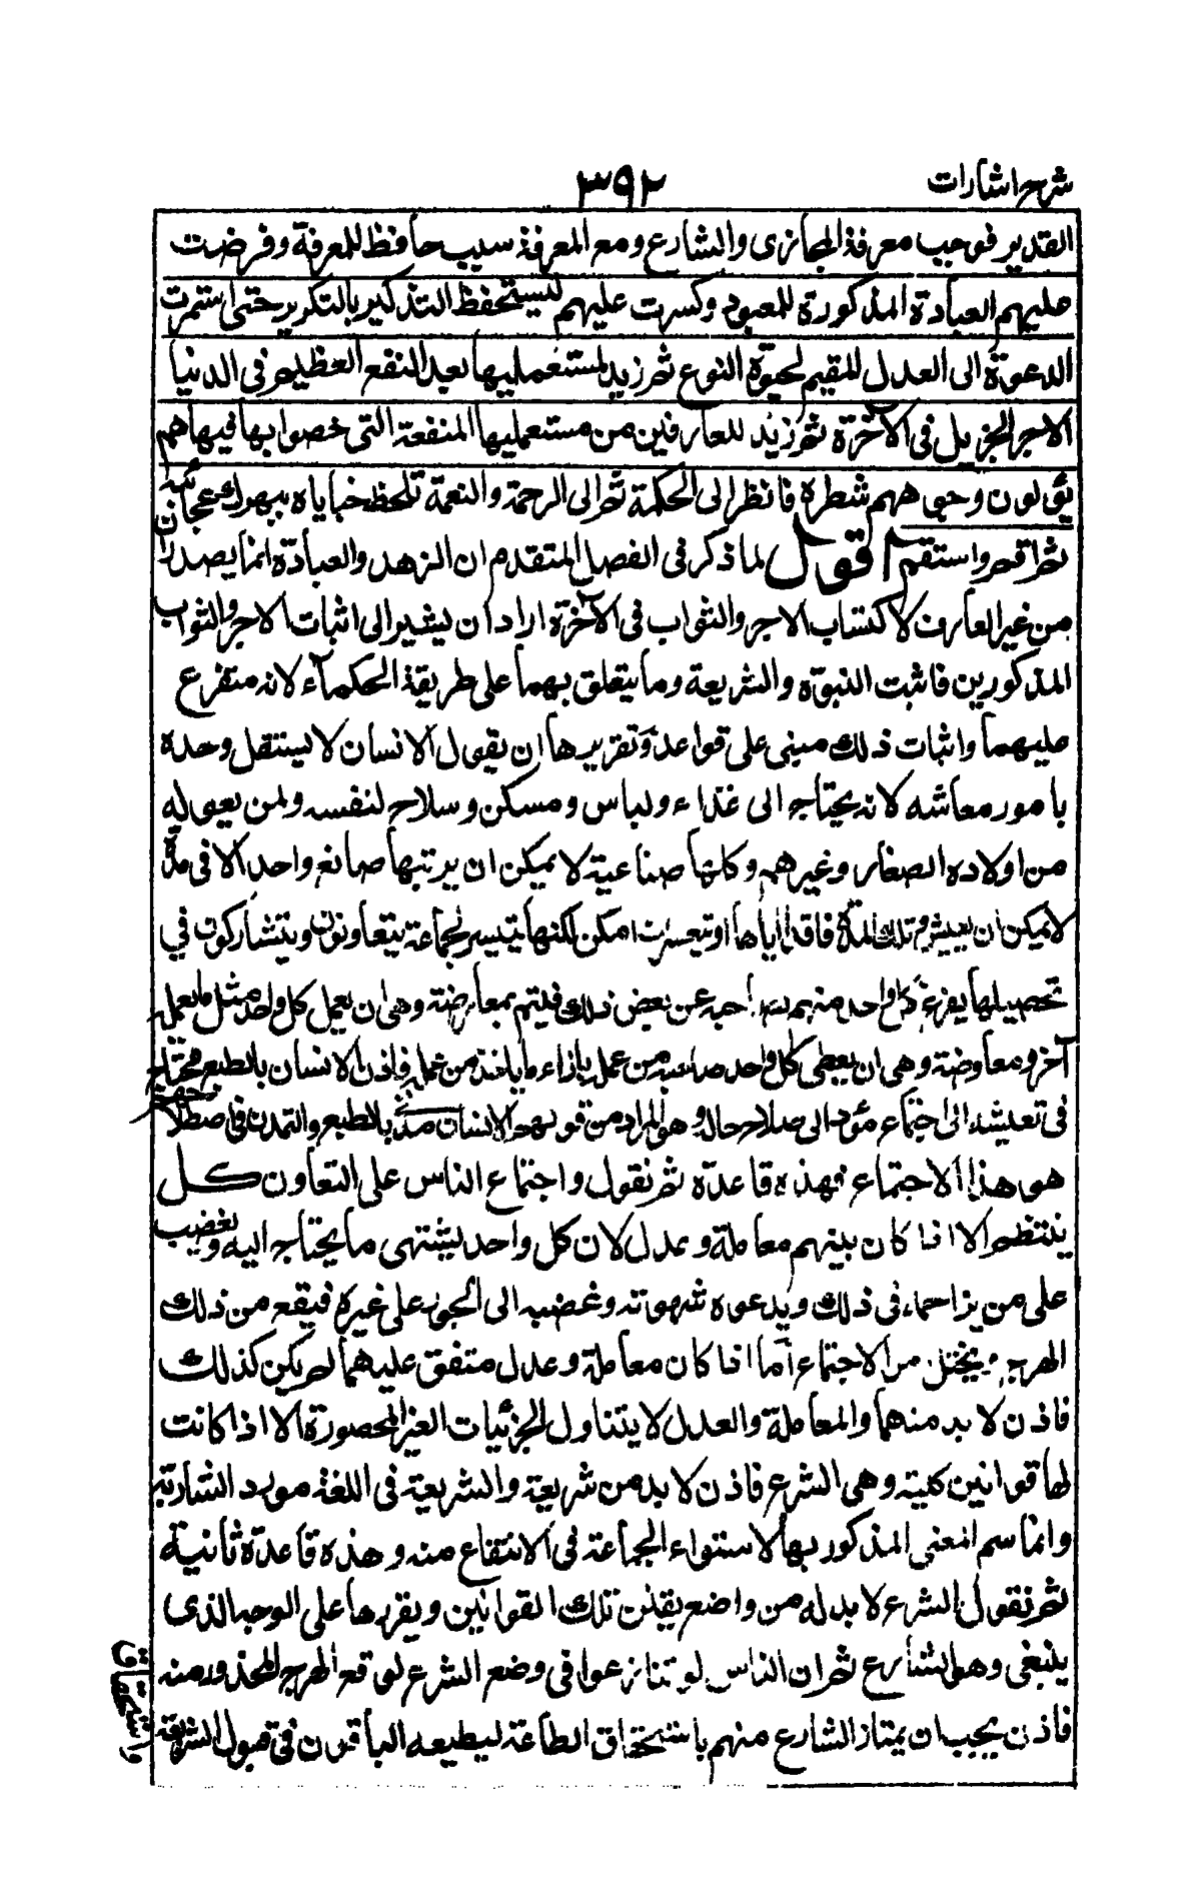 شرح اشارات
٣٩٢
القدير فوجب معرفة المجازى والشارع ومع المعرفة سبب حافظ للمعرفة وفرضت
عليهم العبادة المذكورة للمعبود وكررت عليهم ليستحفظ التذكير بالتكرير حتى استمرت
الدعوة الى العدل المقيم لحيوة النوع ثم زيد لمستعمليها بعد النفع العظيم فى الدنيا
الاجر الجزيل فى الآخرة ثم زيد للعارفين من مستعمليها المنفعة التى خصوا بها فيما هم
مولون وجوههم شطره فانظر الى الحكمة ثم الى الرحمة والنعمة تلحظ جنابا يبهرك عجائبه
ثم اقم واستقم اقول لما ذكر فى الفصل المتقدم ان الزهد والعبادة انما يصدران
من غير العارف لاكتساب الاجر والثواب فى الآخرة اراد ان يشير الى اثبات الاجر والثواب
المذكورين فاثبت النبوة والشريعة وما يتعلق بهما على طريقة الحكماء لانه متفرع
عليهما واثبات ذلك مبنى على قواعد وتقريرها ان يقول الانسان لا يستقل وحده
بامور معاشه لانه يحتاج الى غذاء ولباس ومسكن وسلاح لنفسه ولمن يعوله
من اولاده الصغار وغيرهم وكلها صناعية لا يمكن ان يرتبها صانع واحد الا فى مدة
لا يمكن ان يعيش تلك المدة فاقدا اياها او تعسر ان امكن لكنها تتيسر لجماعة يتعاونون ويتشاركون في
تحصيلها يفرغ كل واحد منهم عن بعض ذلك فيتم بمعارضة وهى ان يعمل كل واحد مثل ما يعمله
آخر ومعاوضة وهى ان يعطى كل واحد صاحبه من عمله بازاء ما ياخذ من عمله فاذن الانسان بالطبع محتاج
فى تعيشه الى اجتماع مؤد الى صلاح حاله وهو المراد من قولهم الانسان مدنى بالطبع والتمدن فى اصطلاحهم
هو هذا الاجتماع فهذه قاعدة ثم نقول واجتماع الناس على التعاون كل
ينتظم الا اذا كان بينهم معاملة وعدل لان كل واحد يشتهى ما يحتاج اليه ويغضب
على من يزاحمه فى ذلك ويدعوه شهوته وغضبه الى الجور على غيره فيقع من ذلك
الهرج ويختل الاجتماع اما اذا كان معاملة وعدل متفق عليهما لم يكن كذلك
فاذن لا بد منهما والمعاملة والعدل لا يتناول الجزئيات الغير المحصورة الا اذا كانت
لها قوانين كلية وهى الشرع فاذن لا بد من شريعة والشريعة فى اللغة مورد الشاربة
وانما سم المعنى المذكور بها لاستواء الجماعة فى الانتفاع منه وهذه قاعدة ثانية
ثم نقول الشرع لا بد له من واضع يقنن تلك القوانين ويقررها على الوجه الذى
ينبغى وهو الشارع ثم ان الناس لو تنازعوا فى وضع الشرع لوقع الهرج المحذور منه
فاذن يجب ان يمتاز الشارع منهم باستحقاق الطاعة ليطيعه الباقون فى قبول الشريعة
واستحقاق